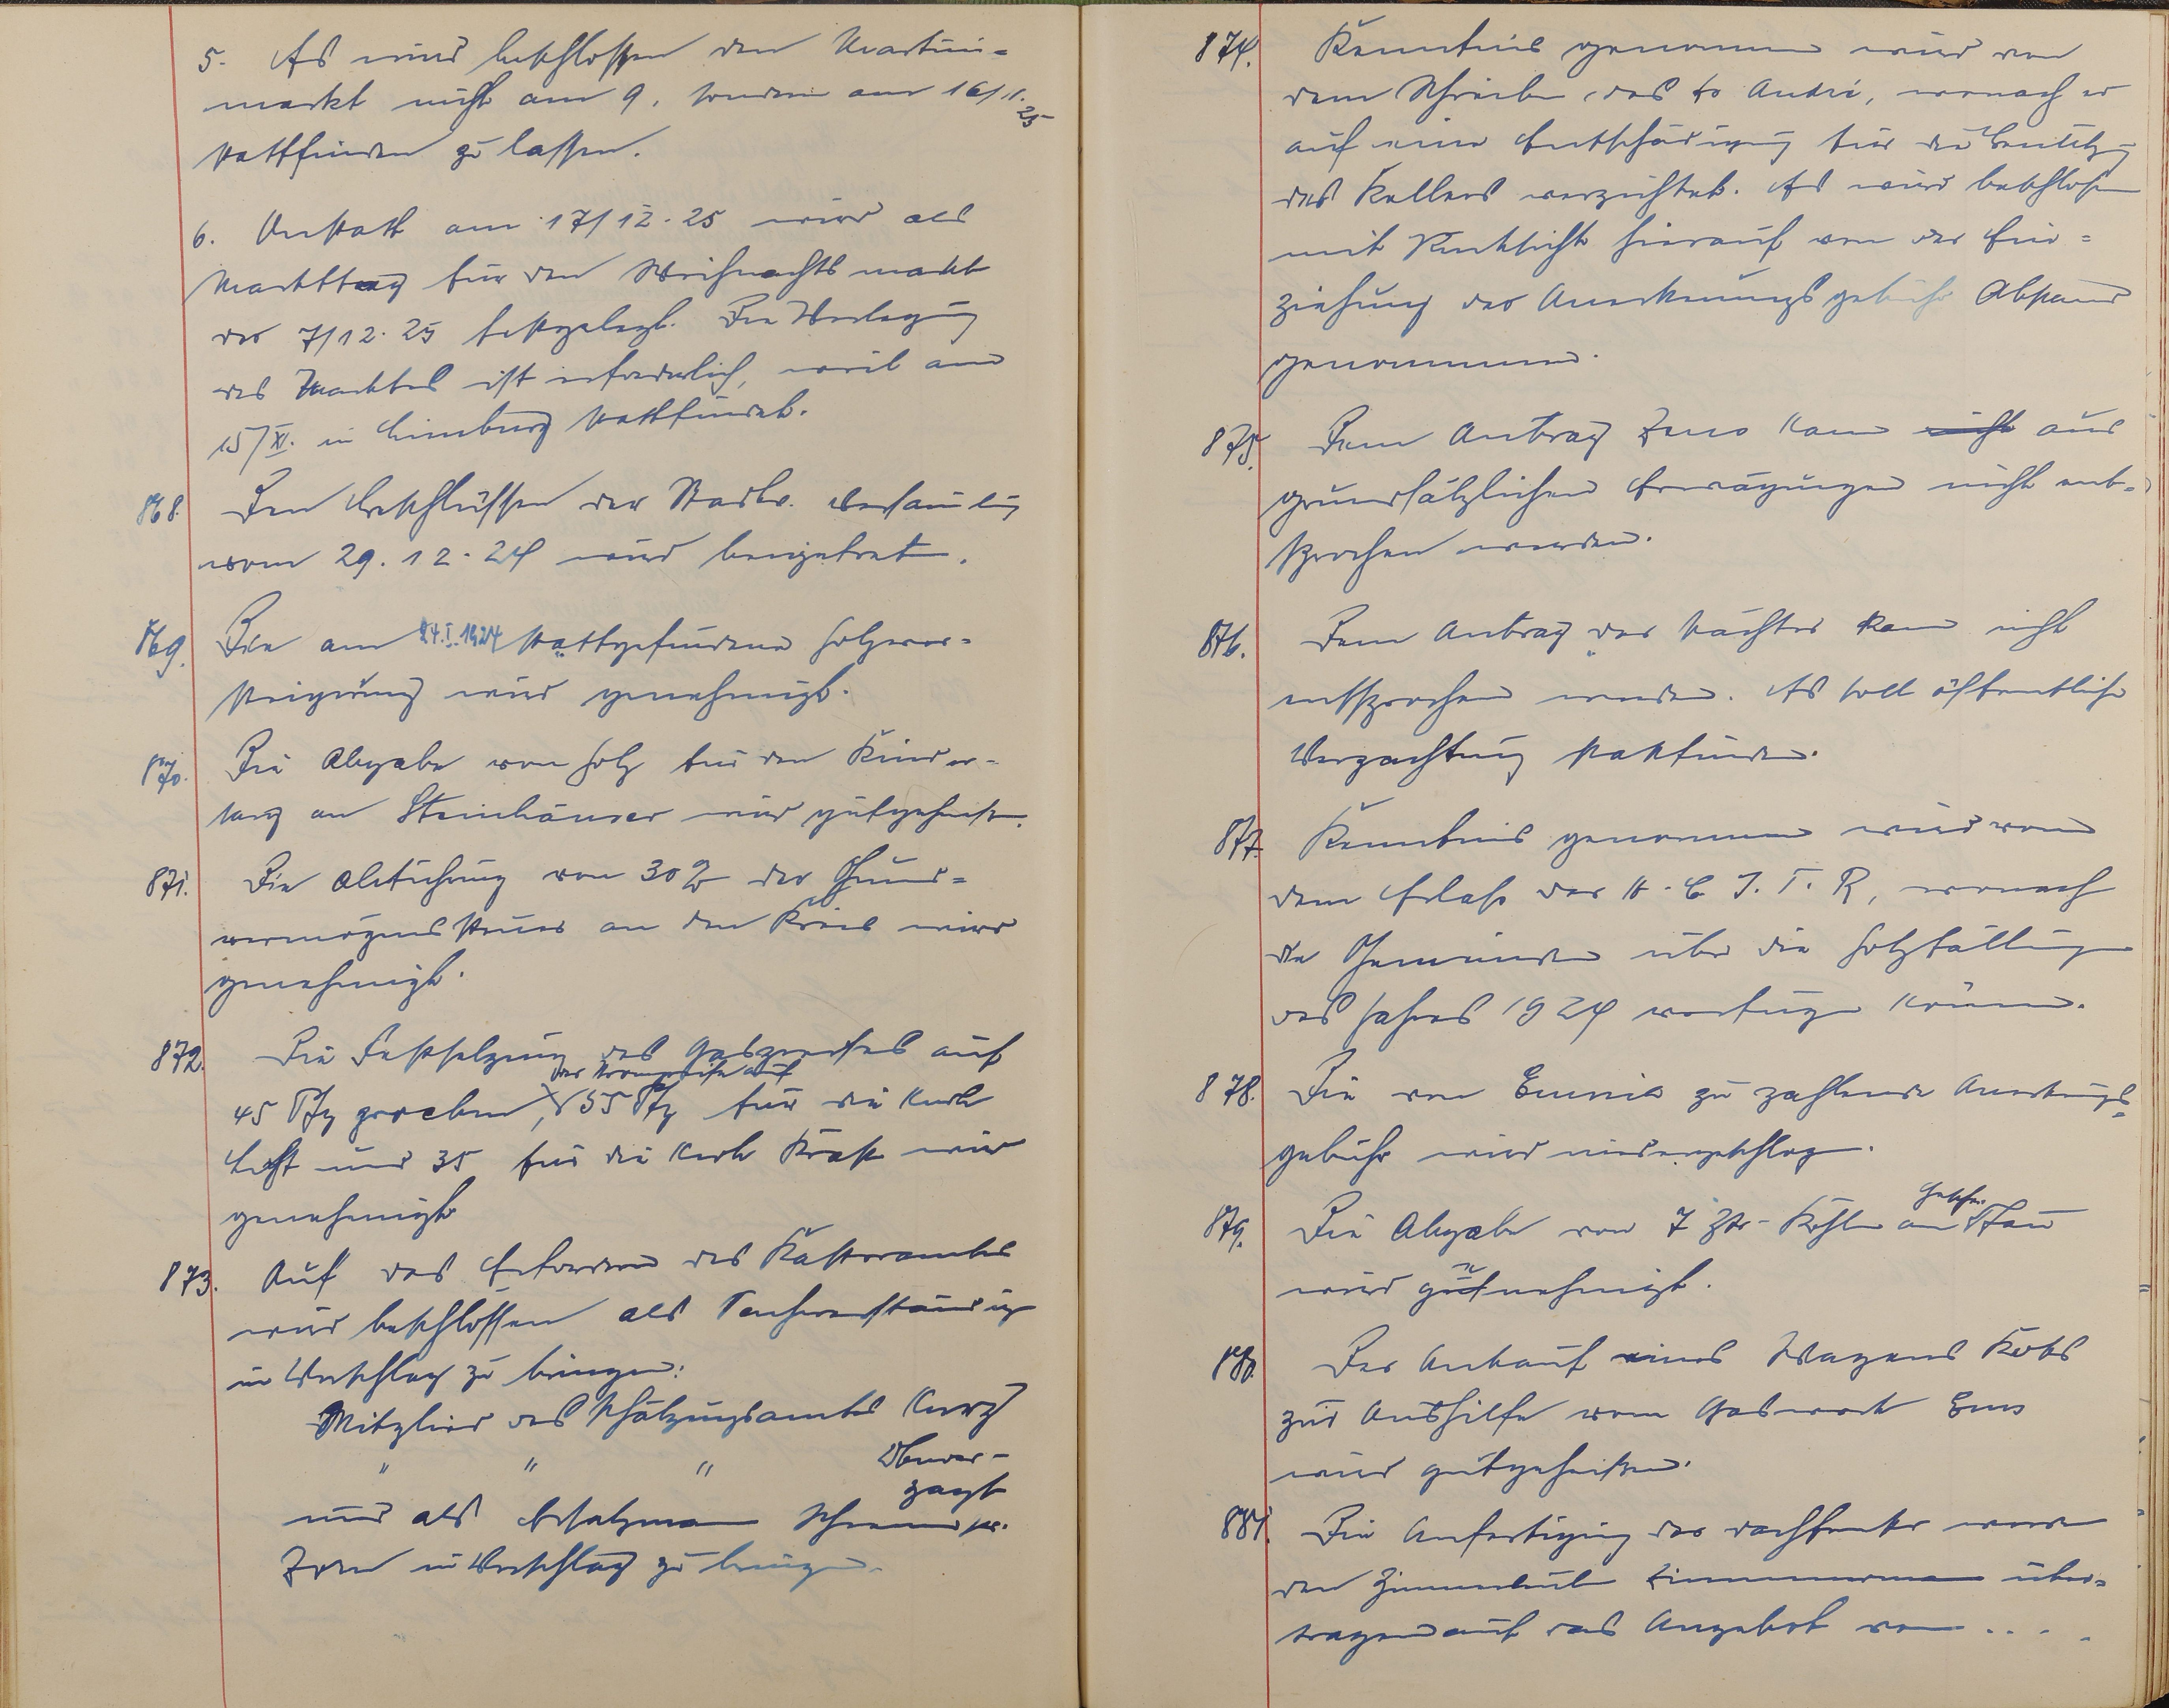 5. Es wird beschlossen den Martini-
markt nicht am 9. sondern am 16/11.
25
stattfinden zu lassen.
6. Anstatt am 17/12.25 wird als
Markttag für den Weihnachtsmarkt
der 7/12.25 festgelegt. Die Verlegung
des Marktes ist erforderlich, weil am
15/XI. in Limburg stattfindet.
868. Den Beschlüssen der Stadtv. Versammlung
vom 29.12.24 wird beigetreten.
869. Die am 24.I.1924 stattgefundene Holzver-
steigerung wird genehmigt.
870. Die Abgabe von Holz für den Kinder-
sarg an Steinhäuser wird gutgeheißen.
871. Die Abführung von 30% der Grund-
vermögenssteuer an den Kreis wird
genehmigt.
872. Die Festsetzung des Gaspreises auf
der Strompreise auf
45 Pfg pro cbm, 55 Pfg für die Kwh
Licht und 35 für die Kwh Kraft wird
genehmigt
873. Auf das Erfordern des Katasteramtes
wird beschlossen als Sachverständige
in Vorschlag zu bringen:
Mitglied des Schätzungsamtes Kurz
" " "
und als Ersatzmann
Zorn in Vorschlag zu bringen.
874. Kenntnis genommen wird von
dem Schreiben des to André, wonach er
auf eine Entschädigung für die Benutzung
des Kellers verzichtet. Es wird beschlossen
mit Rücksicht hierauf von der Ein-
ziehung der Anerkennungsgebühr Abstand
genommen.
875. Dem Antrag kann nicht aus
grundsätzlichen Erwägungen nicht ent-
sprochen werden.
876. Dem Antrag der Wächter kann nicht
entsprochen werden. Es soll öffentliche
Verpachtung stattfinden.
877. Kenntnis genommen wird von
dem Erlass der H.C.I.T.R, wonach
die Gemeinden über die Holzfällung
des Jahres 1924 verfügen können.
878. Die von zu zahlende Anerkennungs-
gebühr wird niedergeschlagen.
879. Die Abgabe von 7 Ztr. Kohlen an Pfau
wird genehmigt.
880. Der Ankauf eines Wagens Koks
zur Aushilfe vom Gaswerk Ems
wird gutgeheißen.
881. Die Anfertigung der Dachfenster werden
den Zimmerleuten Zimmermann über-
tragen auf das Angebot von ....